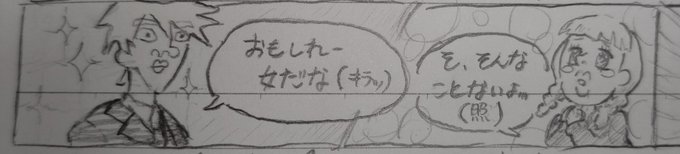 おもしれー
女だな(キラッ)
そ、そんな
ことないよ
(照)